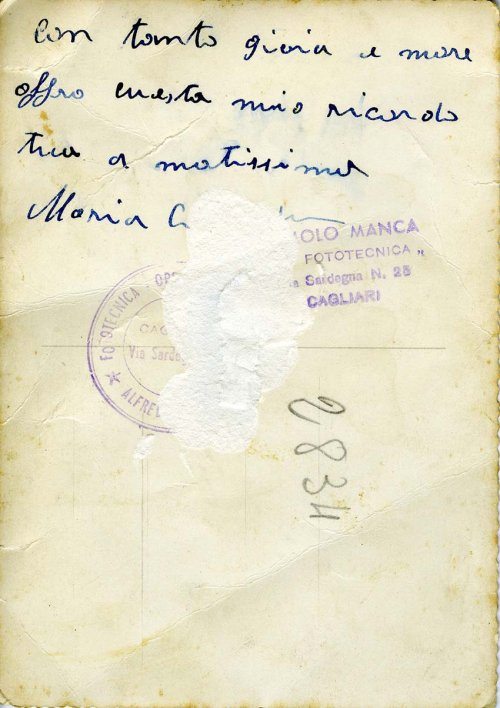 con tanto gioia e more
offro cuesta mio ricordo
tua a matissima
Maria
OLO MANCA
FOTOTECNICA „
Sardegna N. 25
CAGLIARI
FOTOTECNICA
Via Sardeg
ALFRE
2834